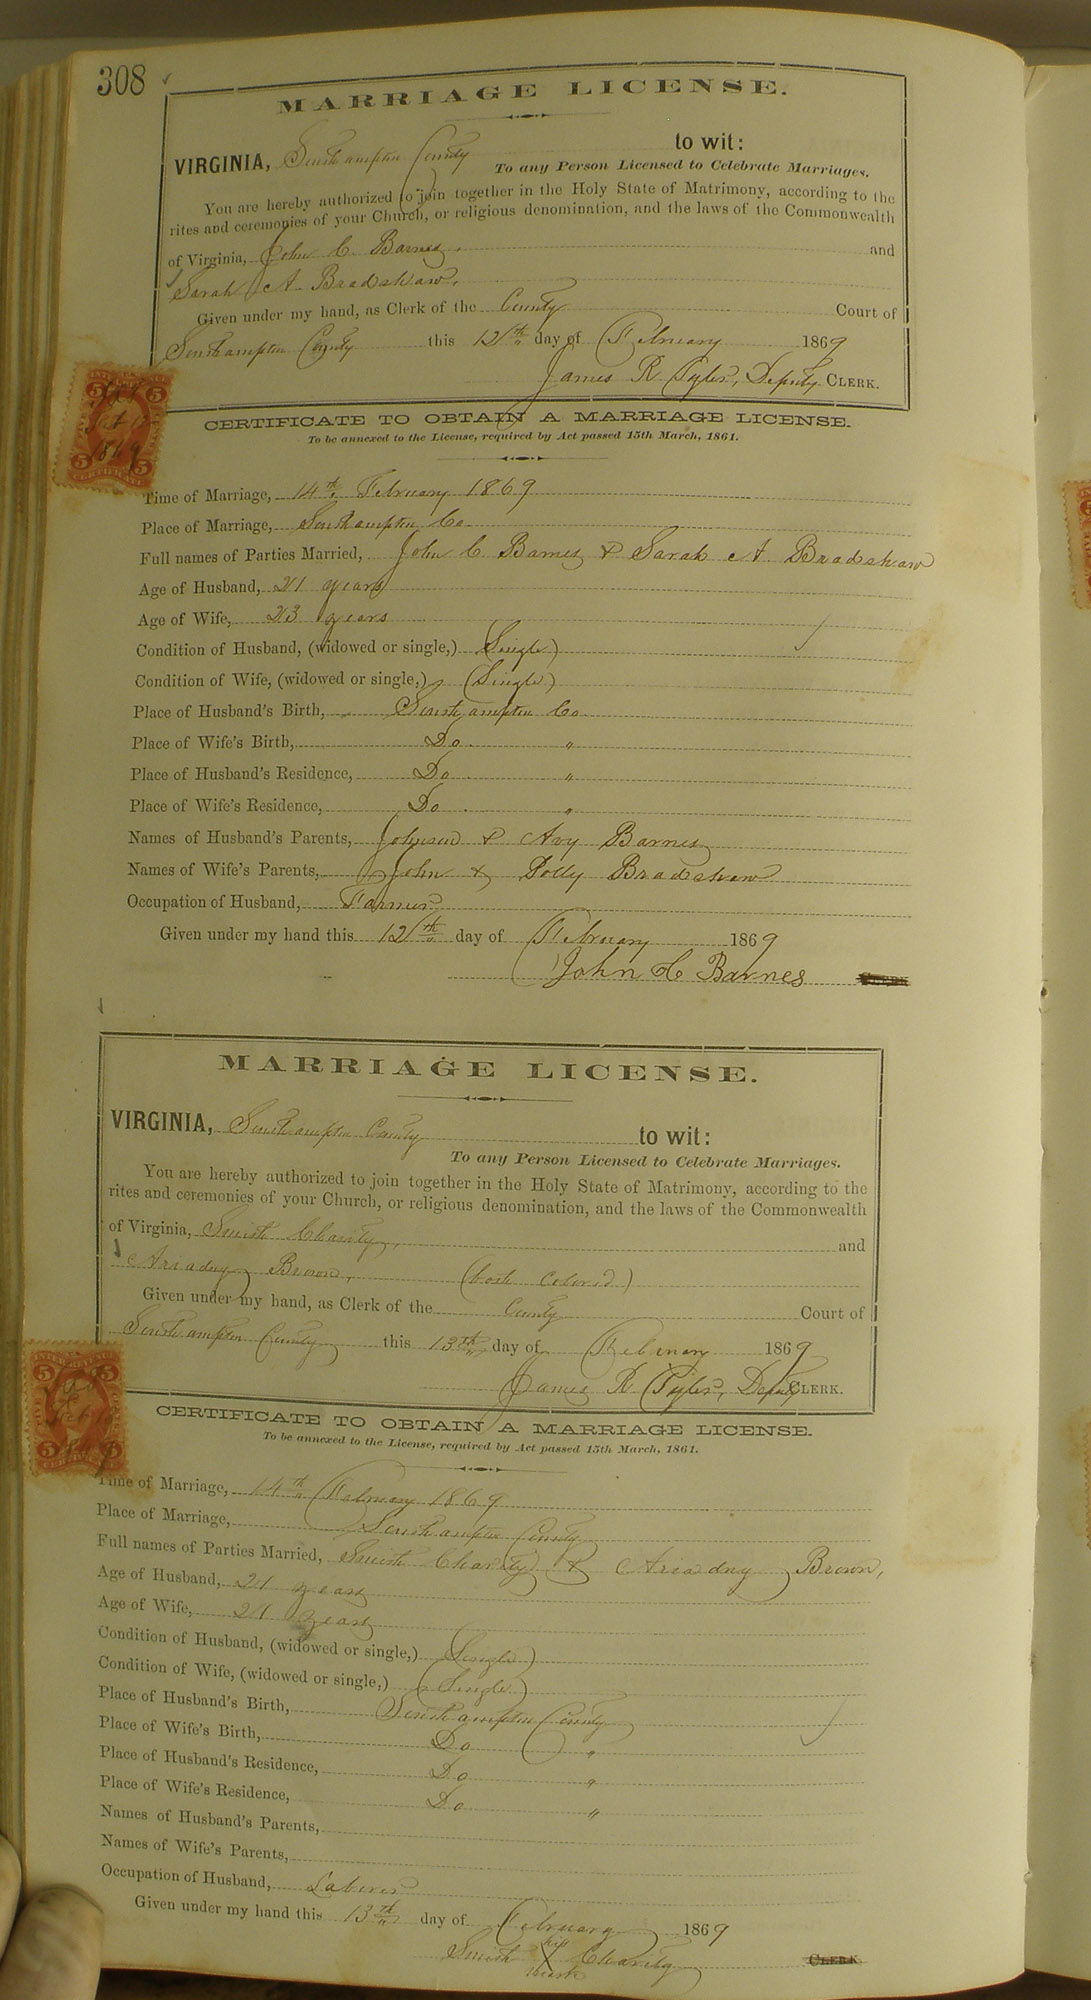 308
MARRIAGE LICENSE.
VIRGINIA, Southampton County to wit:
To any Person Licensed to Celebrate Marriages.
You are hereby authorized to join together in the Holy State of Matrimony, according to the
rites and ceremonies of your Church, or religious denomination, and the laws of the Commonwealth
of Virginia, John C. Barnes, and
Sarah A. Bradshaw,
Given under my hand, as Clerk of the County Court of
Southampton County this 12th day of February 1869
James R. Tyler, Deputy CLERK.
CERTIFICATE TO OBTAIN A MARRIAGE LICENSE.
To be annexed to the License, required by Act passed 15th March, 1861.
Time of Marriage, 14th February 1869
Place of Marriage, Southampton Co
Full names of Parties Married, John C Barnes & Sarah A. Bradshaw
Age of Husband, 21 years
Age of Wife, 23 years
Condition of Husband, (widowed or single,) (Single)
Condition of Wife, (widowed or single,) (Single)
Place of Husband's Birth, Southampton Co
Place of Wife's Birth, Do. "
Place of Husband's Residence, Do "
Place of Wife's Residence, Do "
Names of Husband's Parents, Johnson & Avy Barnes
Names of Wife's Parents, John & Dolly Bradshaw
Occupation of Husband, Farmer
Given under my hand this 12th day of February 1869
John C Barnes CLERK
MARRIAGE LICENSE.
VIRGINIA, Southampton County to wit:
To any Person Licensed to Celebrate Marriages.
You are hereby authorized to join together in the Holy State of Matrimony, according to the
rites and ceremonies of your Church, or religious denomination, and the laws of the Commonwealth
of Virginia, Smith Charity, and
Ariadny Brown, (both colored)
Given under my hand, as Clerk of the County Court of
Southampton County this 13th day of February 1869
James R. Tyler, Deputy CLERK.
CERTIFICATE TO OBTAIN A MARRIAGE LICENSE.
To be annexed to the License, required by Act passed 15th March, 1861.
Time of Marriage, 14th February 1869
Place of Marriage, Southampton County
Full names of Parties Married, Smith Charity & Ariadny Brown,
Age of Husband, 21 years
Age of Wife, 21 years
Condition of Husband, (widowed or single,) (Single)
Condition of Wife, (widowed or single,) (Single)
Place of Husband's Birth, Southampton County
Place of Wife's Birth, Do "
Place of Husband's Residence, Do "
Place of Wife's Residence, Do "
Names of Husband's Parents,
Names of Wife's Parents,
Occupation of Husband, Laborer
Given under my hand this 13th day of February 1869
his
Smith X Charity CLERK
mark